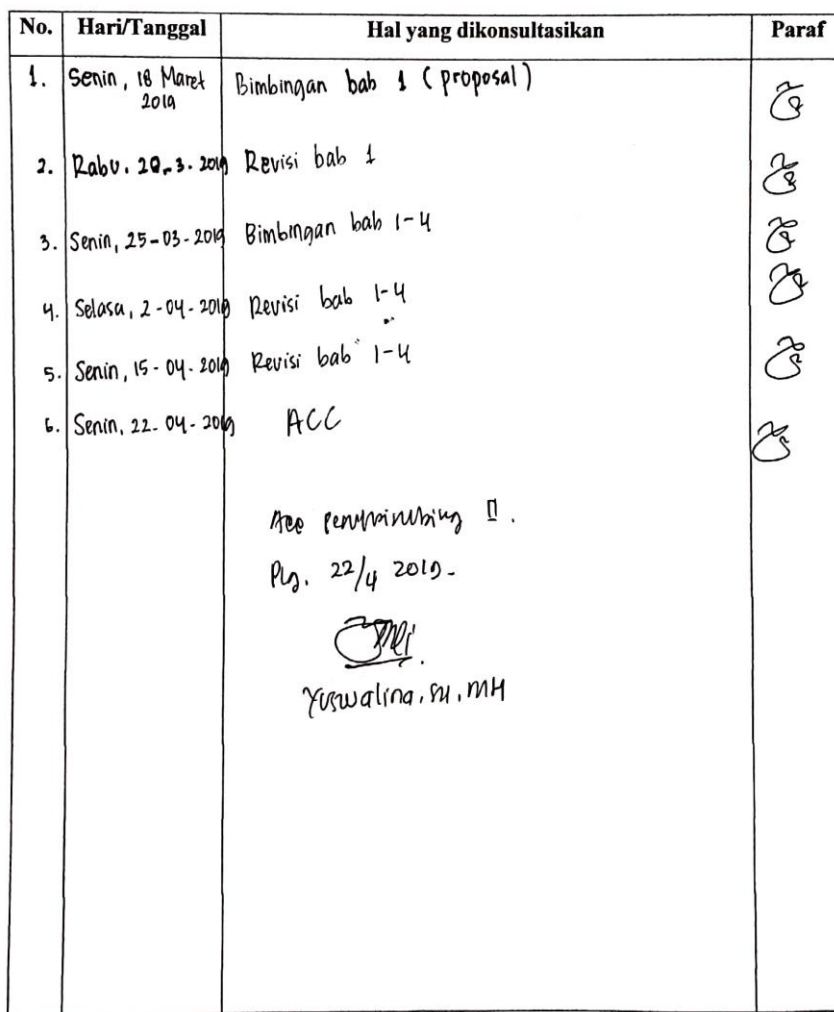 No. Hari/Tanggal Hal yang dikonsultasikan Paraf
1. Senin, 18 Maret 2019 Bimbingan bab 1 (proposal)
2. Rabu. 20.3.2019 Revisi bab 1
3. Senin, 25-03-2019 Bimbingan bab 1-4
4. Selasa, 2-04-2019 Revisi bab 1-4
5. Senin, 15-04-2019 Revisi bab 1-4
6. Senin, 22-04-2019 ACC
Acc pembimbing II.
Plg. 22/4 2019-
Yuswalina, SH, MH